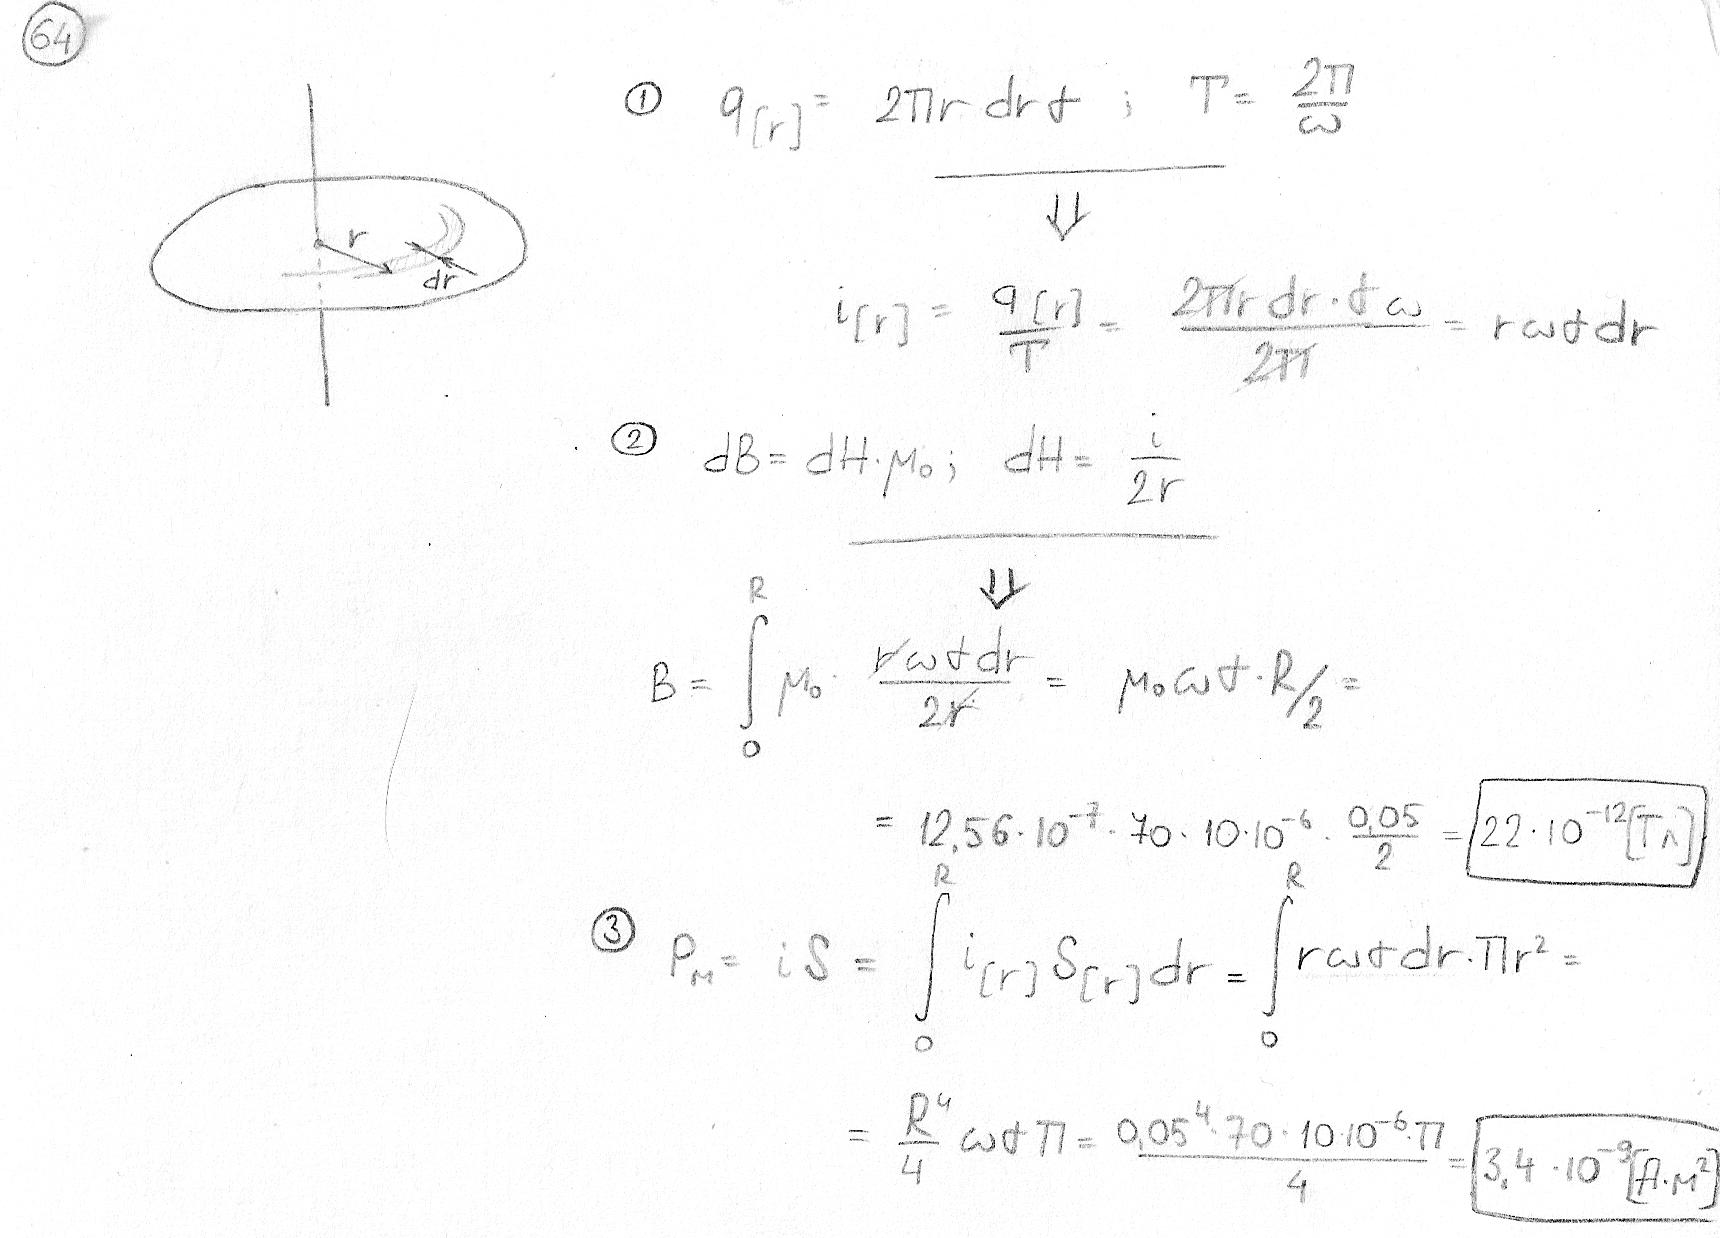 64
① q[r] = 2πr dr σ ; T = 2π/ω
⇓
i[r] = q[r]/T = 2πr dr·σ ω/2π = rωσdr
② dB = dH·μ₀; dH = i/2r
⇓
B = ∫₀ᴿ μ₀· rωσdr/2r = μ₀ωσ·R/2 =
= 12,56·10⁻⁷·70·10·10⁻⁶·0,05/2 = 22·10⁻¹²[Тл]
③ Pм = iS = ∫₀ᴿ i[r] S[r] dr = ∫₀ᴿ rωσdr·πr² =
= R⁴/4 ωσπ = 0,05⁴·70·10·10⁻⁶·π/4 = 3,4·10⁻⁹[А·м²]
r
dr